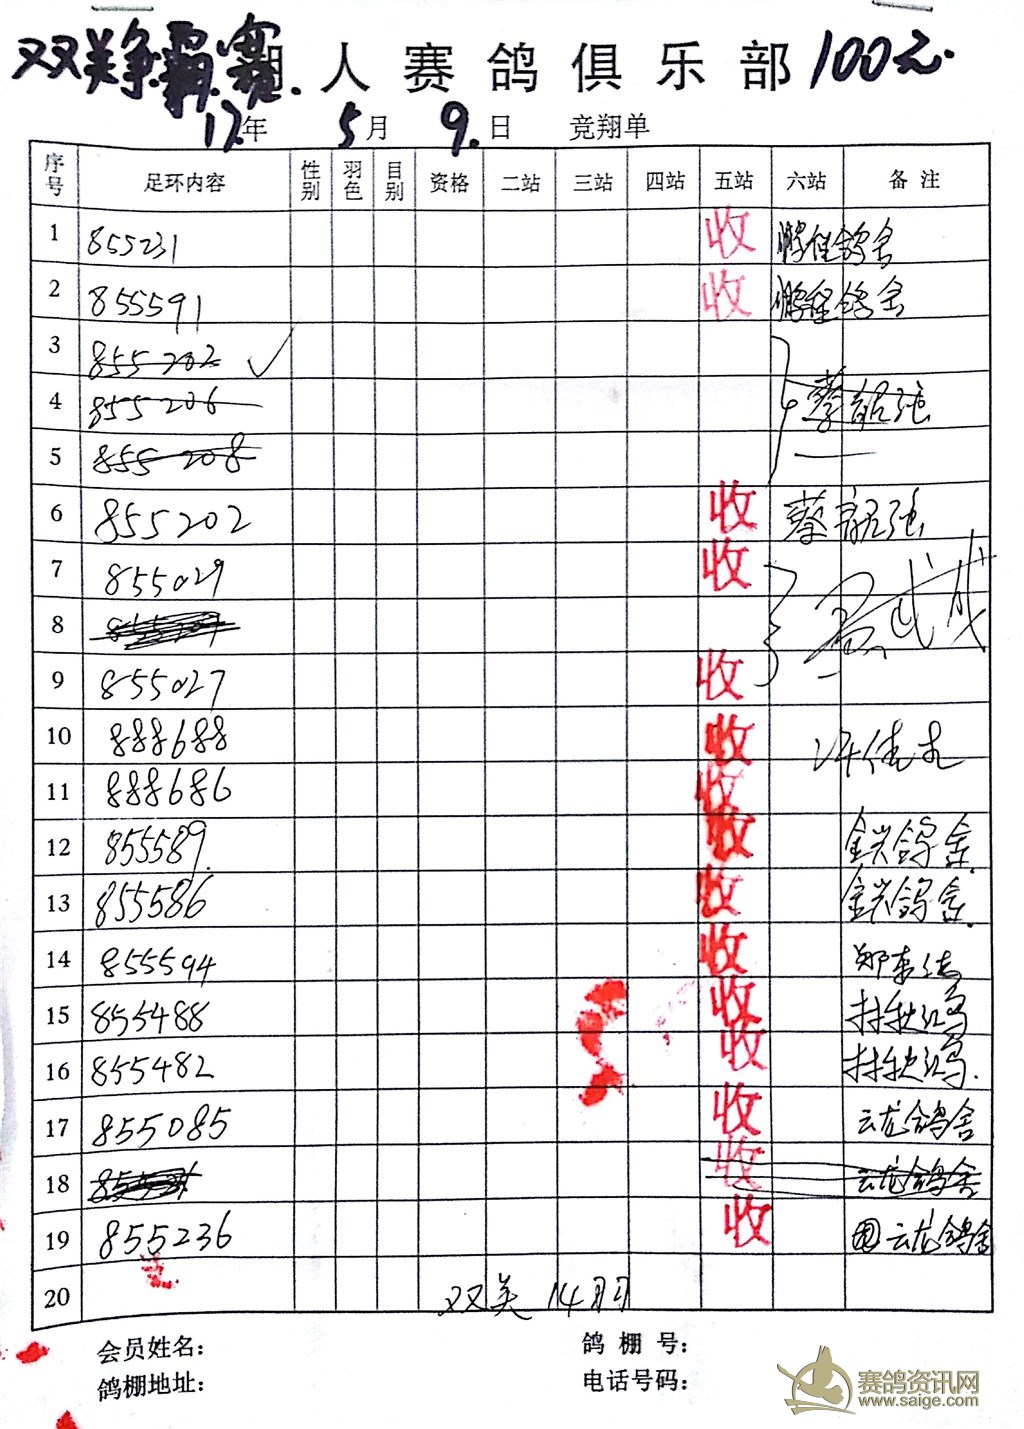 双关争霸赛. 人赛鸽俱乐部 100元.
17年 5月 9.日 竞翔单
序号 足环内容 性别 羽色 目别 资格 二站 三站 四站 五站 六站 备注
1 855231 收 鹏程鸽舍
2 855591 收 鹏程鸽舍
3 855202
4 855206 蔡韶强
5 855208
6 855202 收 蔡韶强
7 855029 收
8
9 855027 收
10 888688 收
11 888686 收
12 855589. 收 金兴鸽舍.
13 855586 收 金兴鸽舍.
14 855594 收
15 855488 收
16 855482 收
17 855085 收 云龙鸽舍
18 收 云龙鸽舍
19 855236 收 云龙鸽舍
20 双关 14羽
会员姓名： 鸽棚号：
鸽棚地址： 电话号码：
赛鸽资讯网
www.saige.com